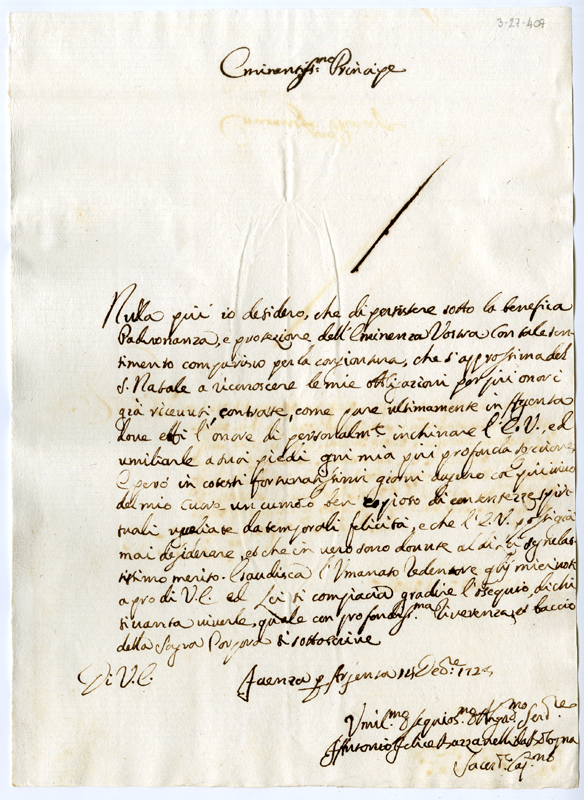 3-27-407
Eminentiss.mo Principe
Nulla più io desidero, che di persistere sotto la benefica
Padronanza, e protezione dell'Eminenza Vostra Con tale sen-
timento comparisco per la congiontura, che s'approssima del
S. Natale a riconoscere le mie obligazioni per più onori
già ricevuti, contratte, come pure ultimamente in Argenta
dove ebbi l'onore di personalm.te inchinare l'E.V., ed
umiliarle a suoi piedi ogni mia più profonda
E però in cotesti fortunatissimi giorni auguro col più vivo
del mio Cuore un cumolo ben copioso di contentezze spiri-
tuali uguagliate da temporali felicità, e che l'E.V. possi già
mai desiderare, et che in vero sono dovute al di lei segnala-
tissimo merito. Esaudisca l'Umanato Redentore miei voti
a pro di V.E. ed Lei si compiaccia gradire l'ossequio, di chi
si vanta viverle, quale con profondiss.ma riverenza, et baccio
della Sagra Porpora si sottoscrive
Di V.E.
Faenza p Argenta Dec.re 172
Umil.mo Osequios.mo Obligat.mo Ser.re
Antonio Felice Bazzanelli da Bologna
Sacerd.e Cap.no